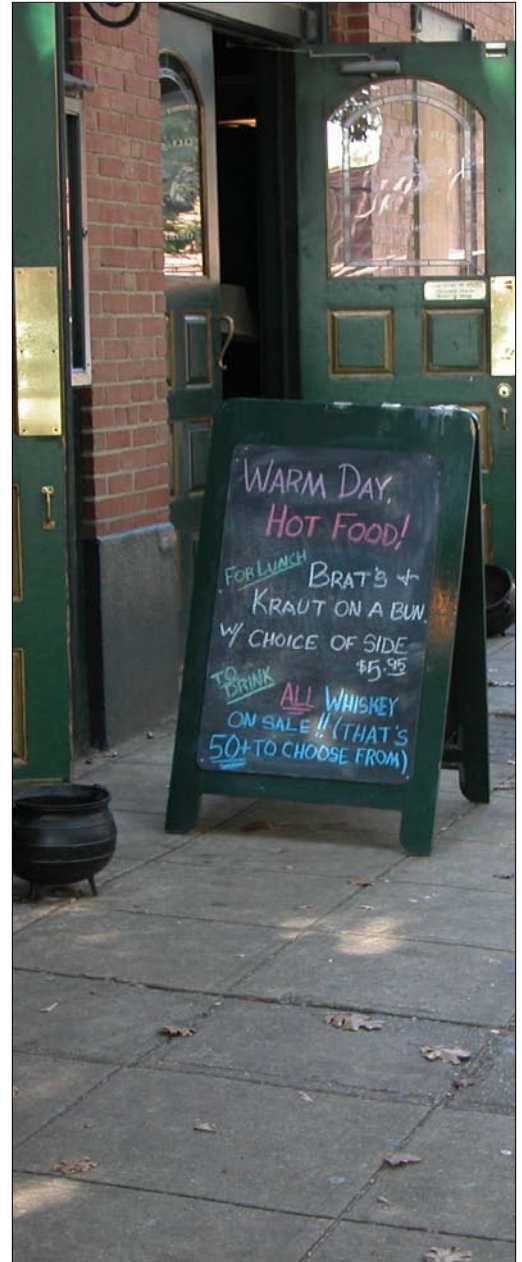 WARM DAY,
HOT FOOD!
FOR LUNCH
BRAT'S +
KRAUT ON A BUN.
W/ CHOICE OF SIDE
$5.95
TO
DRINK
ALL WHISKEY
ON SALE!! (THAT'S
50+ TO CHOOSE FROM)